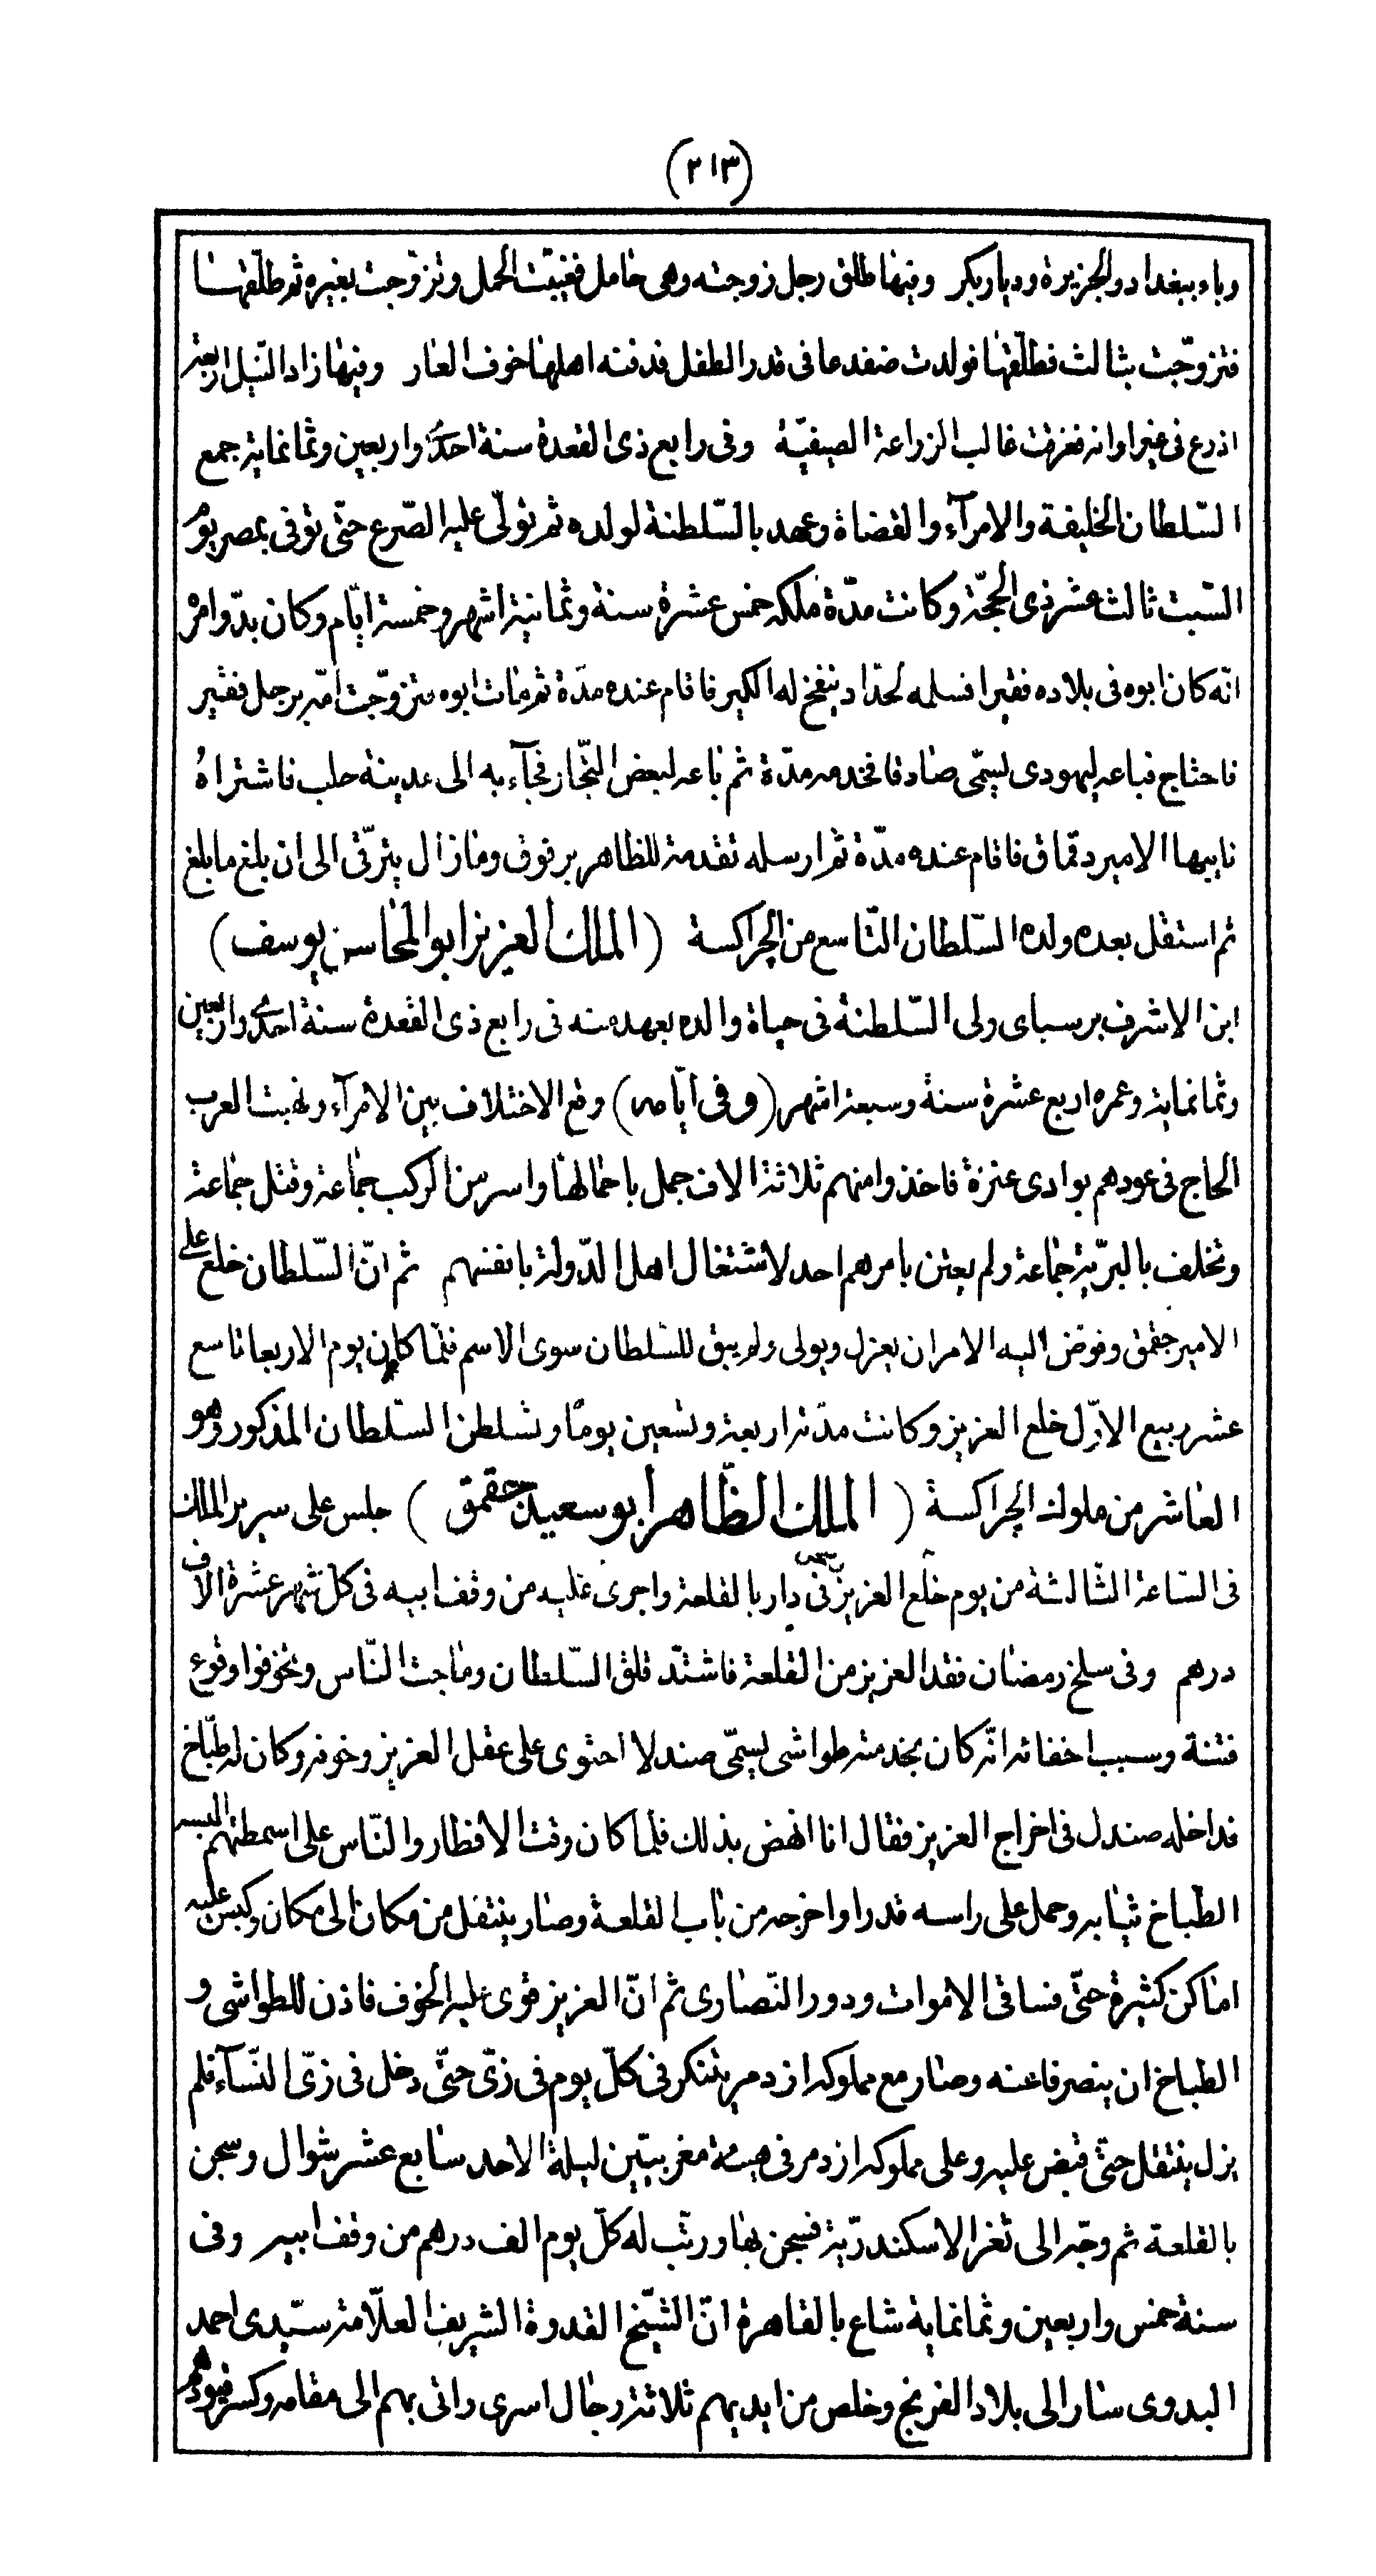 (٢١٣)
وباء ببغداد والجزيرة وديار بكر وفيها طلق رجل زوجته وهى حامل فغيبت الحمل وتزوّجت بغيره ثم طلّقها
فتزوّجت بثالث فطلّقها فولدت ضفدعا فى قدر الطفل فدفنه اهلها خوف العار وفيها زاد النّيل اربعة
اذرع فى غير اوانه فغرقت غالب الزراعة الصيفيّة وفى رابع ذى القعدة سنة احدى واربعين وثمانماية جمع
السّلطان الخليفة والامرآء والقضاة وعهد بالسّلطنة لولده ثم تولّى عليه الصّرع حتّى توفى بمصر يوم
السّبت ثالث عشر ذى الحجّة وكانت مدّة ملكه خمس عشرة سنة وثمانية اشهر وخمسة ايّام وكان بدو امره
انّه كان ابوه فى بلاده فقيرا فسلمه لحدّاد ينفخ له الكير فاقام عنده مدّة ثم مات ابوه فتزوّجت امّه برجل فقير
فاحتاج فباعه ليهودى يسمّى صادقا فخدمه مدّة ثم باعه لبعض التّجار فجآء به الى مدينة حلب فاشتراه
نايبها الامير دقماق فاقام عنده مدّة ثم ارسله تقدمة للظاهر برقوق ومازال يترقّى الى ان بلغ ما بلغ
ثم استقل بعده ولده السّلطان التّاسع من الچراكسة (الملك العزيز ابو المحاسن يوسف)
ابن الاشرف برسباى ولى السّلطنة فى حياة والده بعهد منه فى رابع ذى القعدة سنة احدى واربعين
وثمانماية وعمره اربع عشرة سنة وسبعة اشهر (وفى ايّامه) وقع الاختلاف بين الامرآء ونهبت العرب
الحاج فى عودهم بوادى عنزة فاخذوا منهم ثلاثة الاف جمل باحمالها واسر من الركب جماعة وقتل جماعة
وتخلف بالبرّية جماعة ولم يعتن بامرهم احد لاشتغال اهل الدّولة بانفسهم ثم انّ السّلطان خلع على
الامير جقمق وفوّض اليه الامر ان يعزل ويولى ولم يبق للسّلطان سوى الاسم فلمّا كان يوم الاربعا تاسع
عشر ربيع الاوّل خلع العزيز وكانت مدّته اربعة وتسعين يومًا وتسلطن السّلطان المذكور وهو
العاشر من ملوك الچراكسة (الملك الظّاهر ابو سعيد جقمق) جلس على سرير الملك
فى السّاعة الثّالثة من يوم خلع العزيز وسجن فى دار بالقلعة واجرى عليه من وقف ابيه فى كل شهر عشرة الاف
درهم وفى سلخ رمضان فقد العزيز من القلعة فاشتدّ قلق السّلطان وماجت النّاس وتخوفوا وقوع
فتنة وسبب اخفائه انّه كان بخدمته طواشى يسمّى صندلا احتوى على عقل العزيز وخوفه وكان له طبّاخ
فداخله صندل فى اخراج العزيز فقال انا انهض بذلك فلما كان وقت الافطار والنّاس على اسمطتهم البسه
الطبّاخ ثيابه وحمل على راسه قدرا واخرجه من باب القلعة وصار ينتقل من مكان الى مكان وكبس عليه
اماكن كثيرة حتّى فساقى الاموات ودور النّصارى ثم انّ العزيز قوى عليه الخوف فاذن للطواشى و
الطباخ ان ينصرفا عنه وصار مع مملوكه ازدمر يتنكر فى كلّ يوم فى زىّ حتّى دخل فى زىّ النّسآء فلم
يزل ينتقل حتّى قبض عليه وعلى مملوكه ازدمر فى هيئة مغربيّين ليلة الاحد سابع عشر شوال وسجن
بالقلعة ثم وجّه الى ثغر الاسكندريّة فسجن بها ورتّب له كلّ يوم الف درهم من وقف ابيه وفى
سنة خمس واربعين وثمانماية شاع بالقاهرة انّ الشّيخ القدوة الشريف العلّامة سيّدى احمد
البدوى سار الى بلاد الفرنج وخلص من ايديهم ثلاثة رجال اسرى واتى بهم الى مقامه وكسر قيودهم